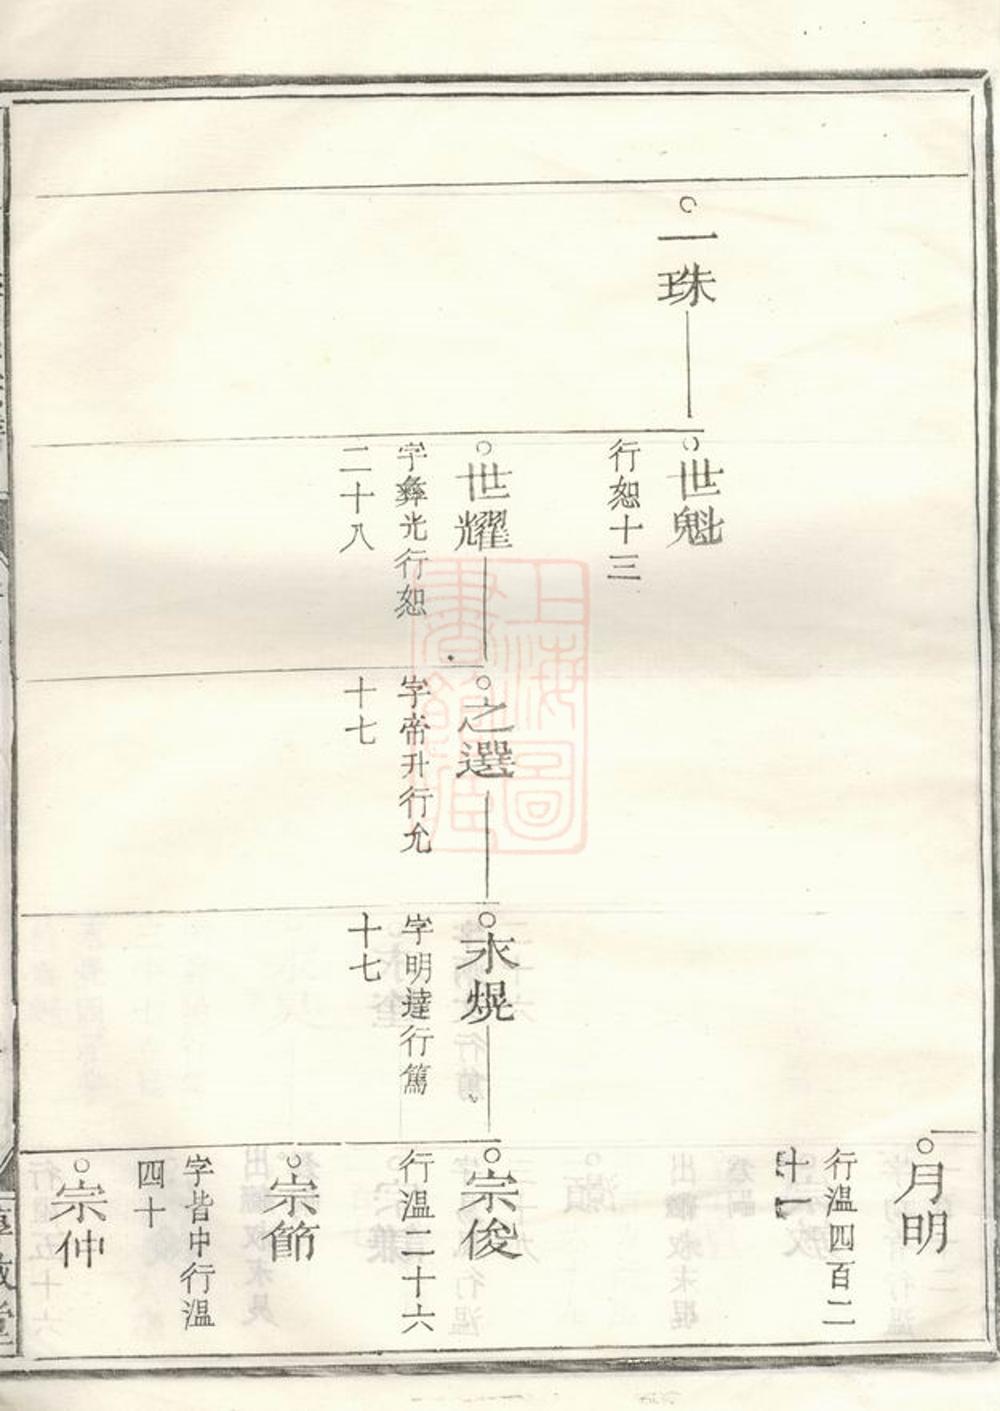 一珠
世魁
行恕十三
世耀
字彝光行恕
二十八
之選
字帝升行允
十七
永焜
字明達行篤
十七
月明
行溫四百二
十一
宗俊
行溫二十六
宗節
字皆中行溫
四十
宗仲
上海圖
書館藏